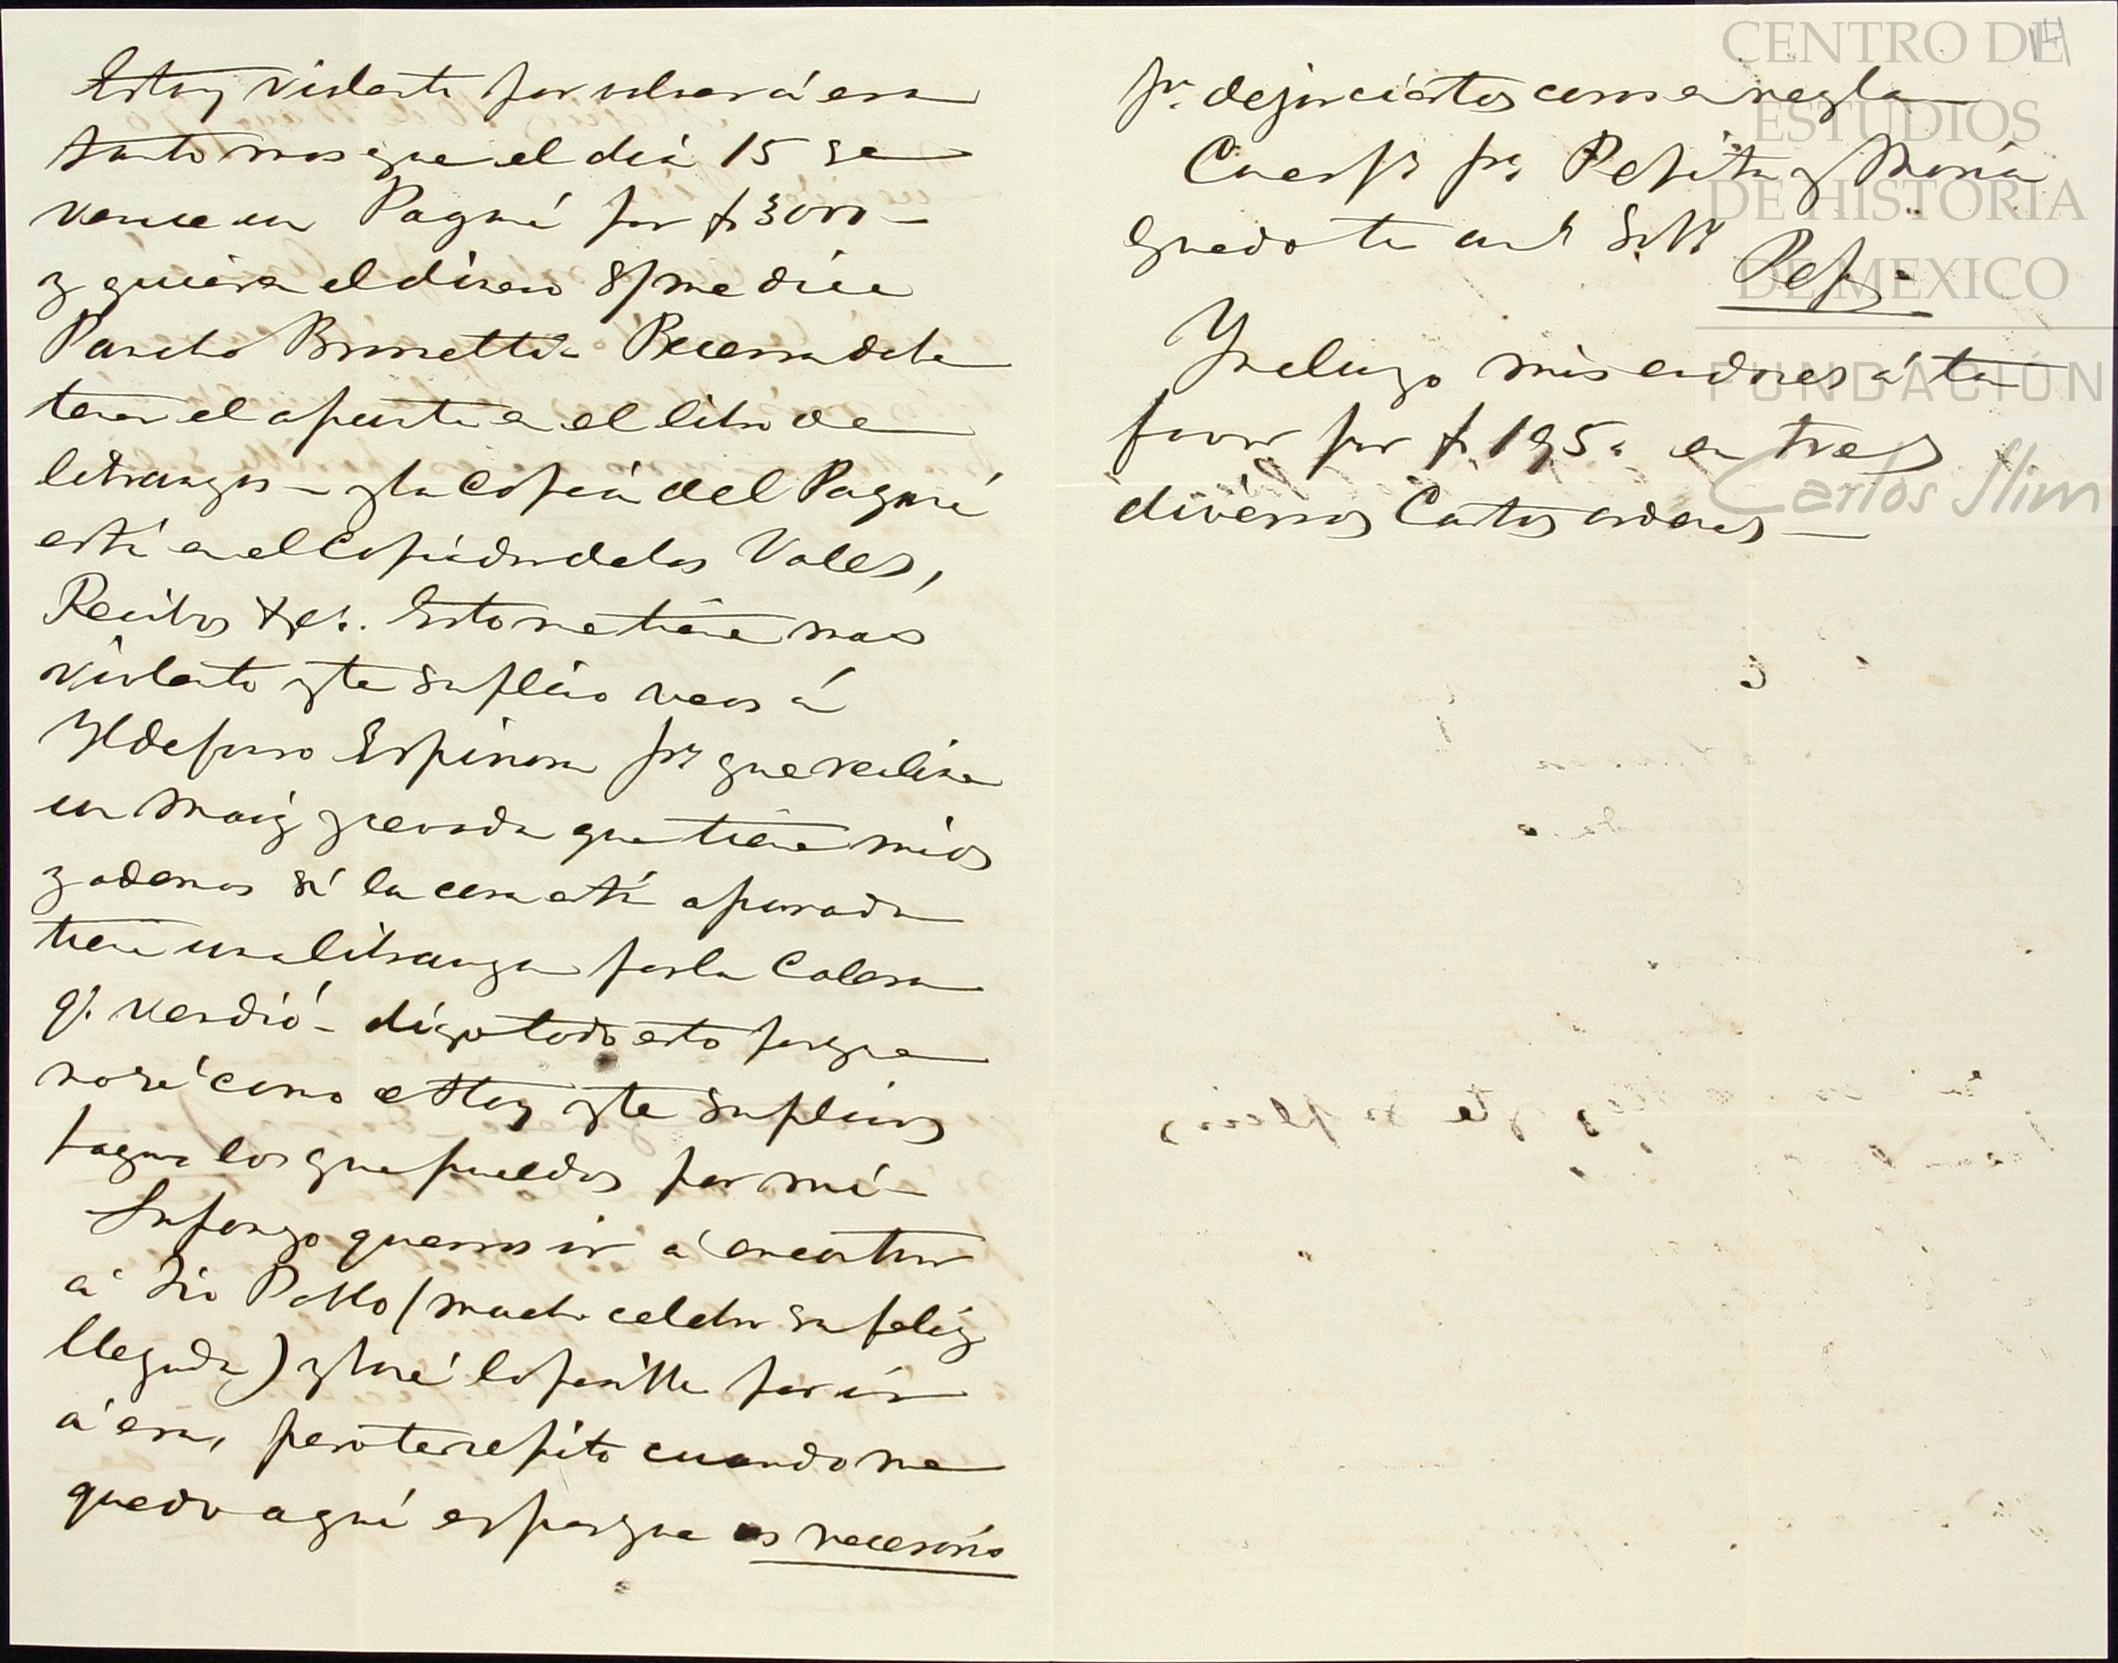 Estoy violento por volver á esa
tanto mas que el dia 15 se
vence un Pagaré por $3000 —
y quiere el dinero s/ me dice
Pancho Brunetti. Becerra debe
tener el apunte en el libro de
libranzas — y la copia del Pagaré
está en el Copiador de los Vales,
Recibos &c. Esto me tiene mas
violento y te suplico veas á
Yldefonso Espinosa pa que realice
un maiz y cevada que tiene mios
y ademas si la cosa está apurada
tiene una libranza por la Calera
q. vendió — digo todo esto porque
no sé como estoy y te suplico
hagas los que puedas por mí —
Supongo querras ir á encontrar
á Tio Pablo (mucho celebro su feliz
llegada) y haré lo posible por ir
á esa, pero te repito cuando me
quedo aquí es porque es necesario
14
pa. dejar ciertas cosas en regla
Cariños pa. Pepita y Maria
quedo tu
Pepe
Yncluyo mis ordenes á tu
favor por $ 195. en tres
diversas Cartas ordenes —
CENTRO DE
ESTUDIOS
DE HISTORIA
DE MEXICO
FUNDACIÓN
Carlos Slim